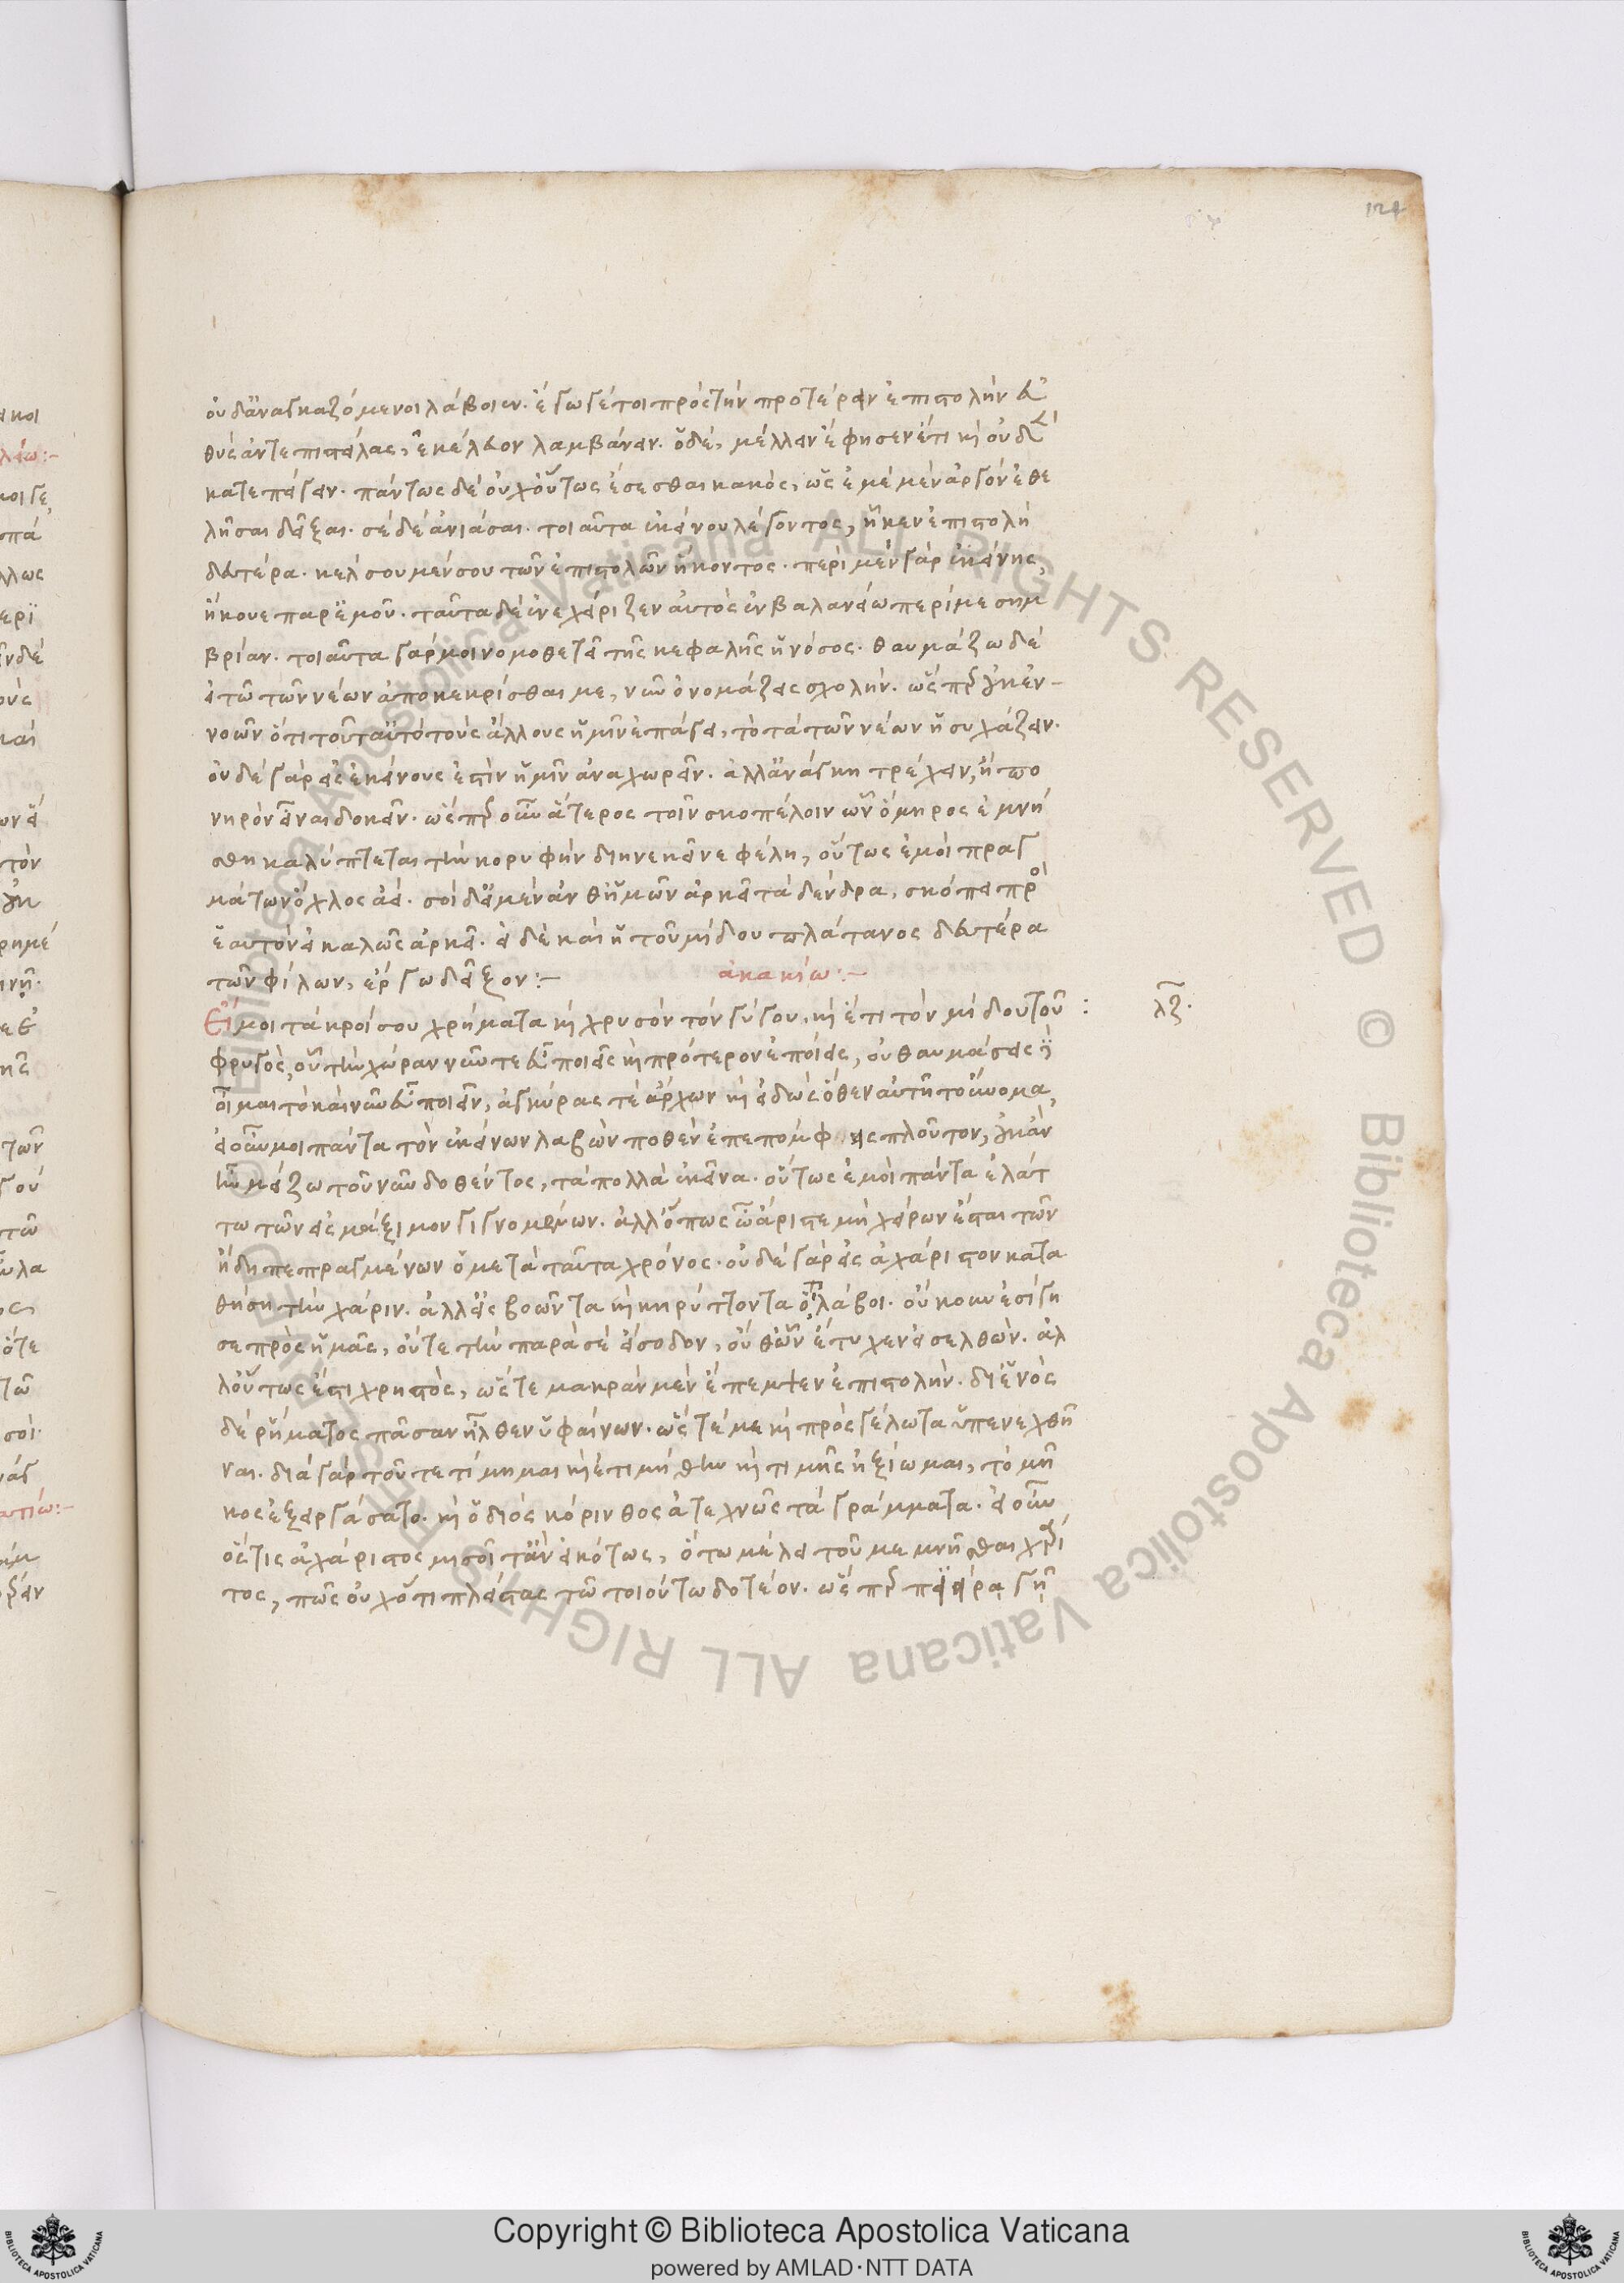 124
οὐδ' ἀναγκαζόμενοι λάβοιεν. ἐγὼ γέ τοι πρὸς τὴν προτέραν ἐπιστολὴν εὐ
θὺς ἀντεπιστείλας, ἐκέλευον λαμβάνειν. ὁ δὲ, μέλλειν ἔφησεν ἔτι κ οὐδὲ
κατεπείγειν. πάντως δὲ οὐχ οὕτως ἔσεσθαι κακὸς, ὡς ἐμὲ μὲν ἀργὸν ἐθε
λῆσαι δεῖξαι. σὲ δὲ ἀνιάσαι. τοιαῦτα ἐκείνου λέγοντος, ἧκεν ἐπιστολὴ
δευτέρα. κελσου μὲν σου τῶν ἐπιστολῶν ἥκοντος. περὶ μὲν γὰρ ἐκείνης,
ἤκουε παρ' ἐμοῦ. ταῦτα δὲ ἐνεχείριζεν αὐτὸς ἐν βαλανείω περὶ μεσημ
βρίαν. τοιαῦτα γάρ μοι νομοθετεῖ τῆς κεφαλῆς ἡ νόσος. θαυμάζω δὲ
εἰ τῶ τῶν νέων ἀποκεκρίσθαι με, νῦν ὀνομάζεις σχολήν. ὥσπερ οὐκ ἐν-
νοῶν ὅτι τοῦτ' αὐτὸ τοὺς ἄλλους ἡμῖν ἐπάγει, τὸ τὰ τῶν νέων ἡσυχάζειν.
οὐδὲ γὰρ εἰς ἐκείνους ἐστὶν ἡμῖν ἀναχωρεῖν. ἀλλ' ἀνάγκη τρέχειν, ἢ πο
νηρὸν εἶναι δοκεῖν. ὥσπερ οὖν ἅτερος τοῖν σκοπέλοιν ὧν ὅμηρος ἐμνή
σθη καλύπτεται τὴν κορυφὴν διηνεκεῖ νεφέλη, οὕτως ἐμοὶ πραγ
μάτων ὄχλος ἀεί. σοὶ δ' εἰ μὲν ἀνθ' ἡμῶν ἀρκεῖ τὰ δένδρα, σκόπει πρὸ
ἑαυτὸν εἰ καλῶς ἀρκεῖ. εἰ δὲ καὶ ἡ τοῦ μίδου πλάτανος δευτέρα
τῶν φίλων, ἔργω δεῖξον:–
ἀκακίω:–
Εἴ μοι τὰ κροίσου χρήματα κ χρυσὸν τὸν γύγου. κ ἔτι τὸν μίδου τοῦ :
λζ.
φρυγὸς, οὗ τὴν χώραν νῦν τε εὖ ποιεῖς κ πρότερον ἐποίεις, οὐ θαυμάσεις
οἶμαι τὸ καὶ νῦν εὖ ποιεῖν, ἀγκύρας τὲ ἄρχων κ εἰδὼς ὅθεν αὐτῆ τοὔνομα,
εἰ οὖν μοι πάντα τὸν ἐκείνων λαβὼν ποθὲν ἐπεπόμφεις πλοῦτον, οὐκ ἂν
ἦν μείζω τοῦ νῦν δοθέντος, τὰ πολλὰ ἐκεῖνα. οὕτως ἐμοὶ πάντα ἐλάτ
τω τῶν εἰς μάξιμον γιγνομένων. ἀλλ' ὅπως ὦ ἄριστε μὴ χείρων ἔσται τῶν
ἤδη πεπραγμένων ὁ μετὰ ταῦτα χρόνος. οὐδὲ γὰρ εἰς ἀχάριστον κατα
θήση τὴν χάριν. ἀλλ' εἰς βοῶντα κ κηρύττοντα ὅτι λάβοι. οὔκουν ἐσίγη
σε πρὸς ἡμᾶς, οὔτε τὴν παρὰ σὲ εἴσοδον, οὔθ' ὧν ἔτυχεν εἰσελθών. ἀλ
λ' οὕτως ἐστὶ χρηστὸς, ὥστε μακρὰν μὲν ἔπεμψεν ἐπιστολήν. δι' ἑνὸς
δὲ ῥήματος πᾶσαν ἦλθεν ὑφαίνων. ὥστέ με κ πρὸς γέλωτα ὑπενεχθῆ
ναι. διὰ γὰρ τοῦ τετίμημαι κ ἐτιμήθην κ τιμῆς ἠξίωμαι, τὸ μῆ
κος ἐξειργάσατο. κ ὁ διὸς κόρινθος ἀτεχνῶς τὰ γράμματα. εἰ οὖν
ὅστις ἀχάριστος μισοῖτ' ἂν εἰκότως, ὅτω μέλει τοῦ μεμνῆσθαι χρι
τος, πῶς οὐχ ὅτι πλείστας τῶ τοιούτω δοτέον. ὥσπερ γῆ
Copyright © Biblioteca Apostolica Vaticana
powered by AMLAD·NTT DATA